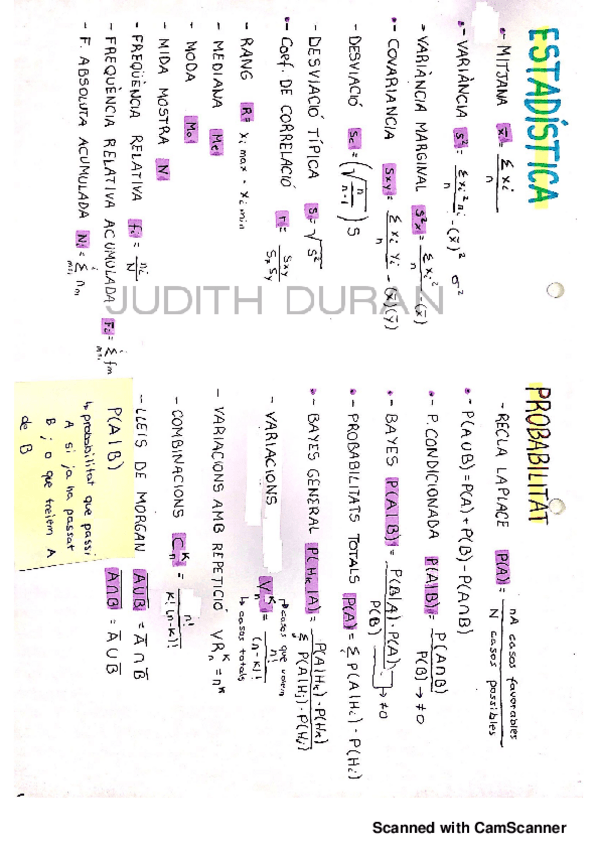 ESTADÍSTICA
- MITJANA x̄ = Σ xi / n
- VARIÀNCIA S² = Σ xi² ni / n - (x̄)² σ²
- VARIÀNCIA MARGINAL S²x = Σ xi² / n - (x̄)
- COVARIANCIA Sxy = Σ xi yi / n - (x̄)(ȳ)
- DESVIACIÓ Sc = (√ n / n-1) S
- DESVIACIÓ TÍPICA S = √S²
- Coef. DE CORRELACIÓ r = Sxy / Sx Sy
- RANG R = xi max - xi min
- MEDIANA Me
- MODA Mo
- MIDA MOSTRA N
- FREQÜÈNCIA RELATIVA fi = ni / N
- FREQUÈNCIA RELATIVA ACUMULADA Fi = Σ fm
- F. ABSOLUTA ACUMULADA Ni = Σ nm
JUDITH DURAN
PROBABILITAT
- REGLA LAPLACE P(A) = nA casos favorables / N casos possibles
- P(A∪B) = P(A) + P(B) - P(A∩B)
- P. CONDICIONADA P(A|B) = P(A∩B) / P(B) → ≠0
- BAYES P(A|B) = P(B|A) · P(A) / P(B) → ≠0
- PROBABILITATS TOTALS P(A) = Σ P(A|Hi) · P(Hi)
- BAYES GENERAL P(Hk|A) = P(A|Hk) · P(Hk) / Σ P(A|Hj) · P(Hj)
- VARIACIONS V n k = n! / (n-k)!
casos que volem
↳ casos totals
- VARIACIONS AMB REPETICIÓ VR n k = n^k
- COMBINACIONS C n k = n! / k!(n-k)!
- LLEIS DE MORGAN A̅∪̅B̅ = A̅ ∩ B̅
A̅∩̅B̅ = A̅ ∪ B̅
P(A|B)
↳ probabilitat que passi
A si ja ha passat
B ; o que treiem A
de B
Scanned with CamScanner